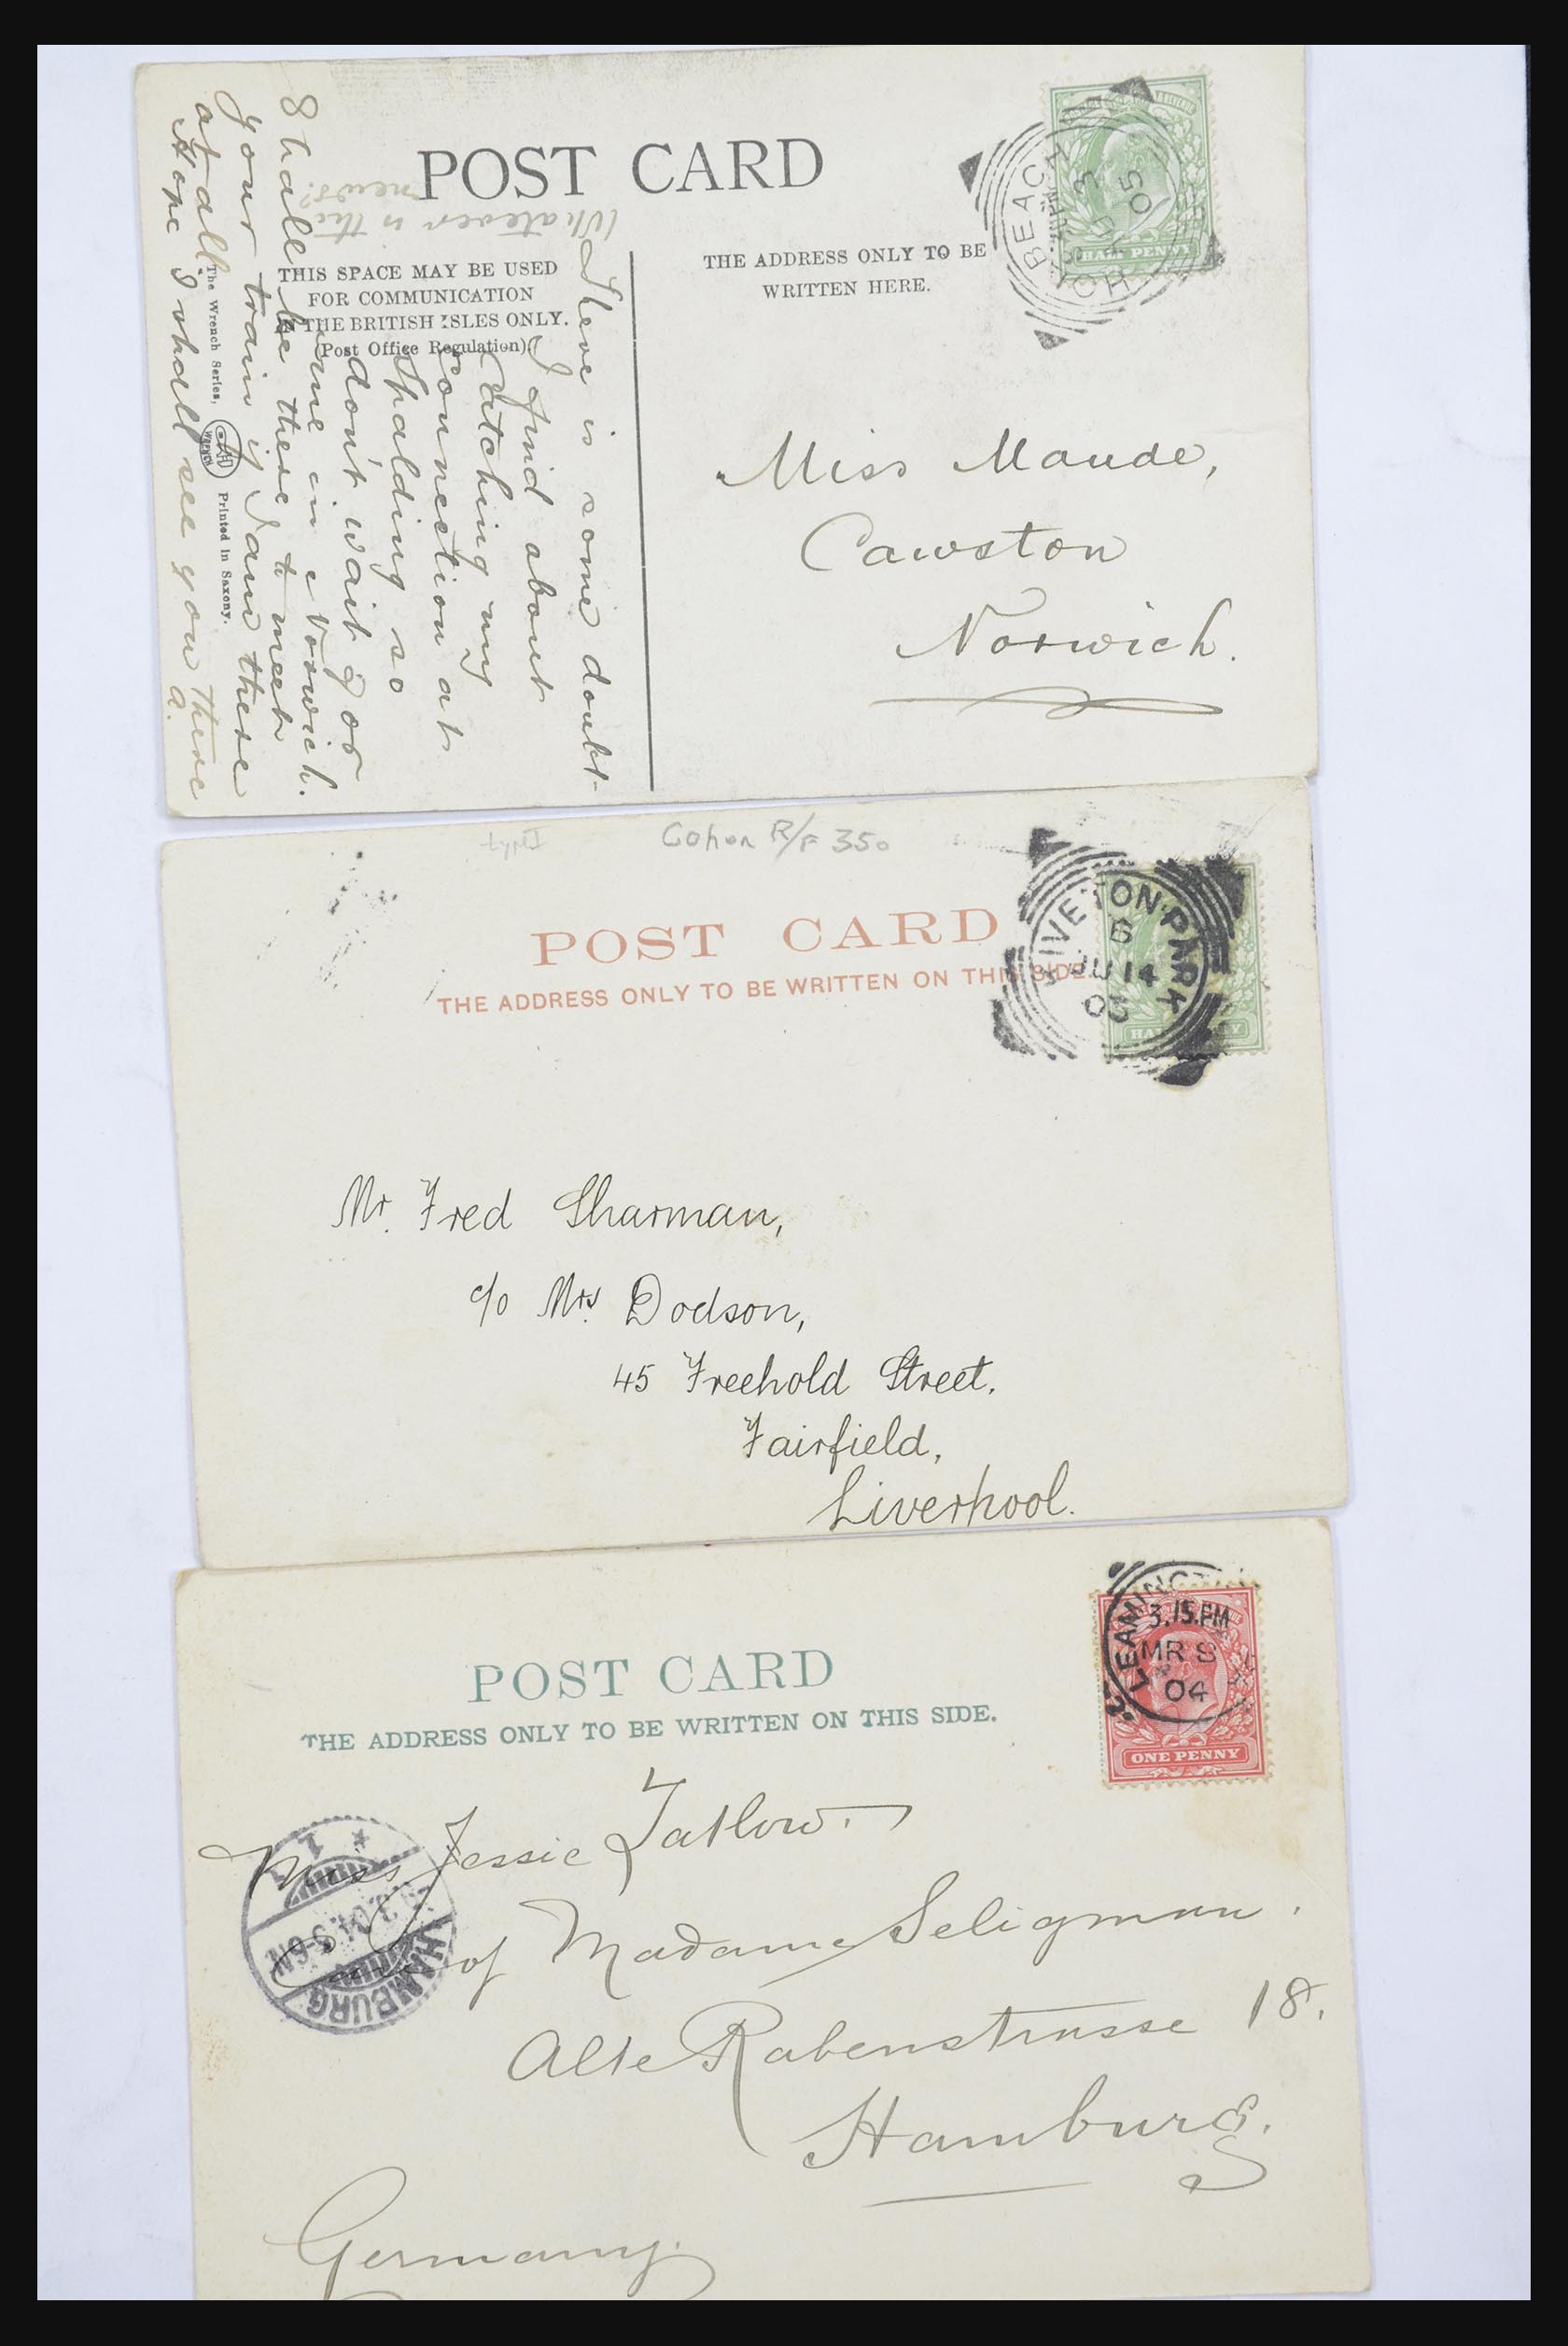 POST CARD
Whatever is this
news?
THIS SPACE MAY BE USED
FOR COMMUNICATION
IN THE BRITISH ISLES ONLY.
(Post Office Regulation).
THE ADDRESS ONLY TO BE
WRITTEN HERE.
HALF PENNY
BEACH
05
There is some doubt
I find about
catching my
connection at
Spalding so
don't wait for
me in Norwich.
Shall be there to meet
your train if I am there
at all
Hope I shall see you there
A.
The Wrench Series,
WRENCH
Printed in Saxony.
Miss Maude,
Cawston
Norwich.
Cohen R/F 350
POST CARD
THE ADDRESS ONLY TO BE WRITTEN ON THIS SIDE.
TON·PARK
6
JU 14
03
Mr. Fred Sharman,
c/o Mrs Dodson,
45 Freehold Street,
Fairfield,
Liverpool.
POST CARD
THE ADDRESS ONLY TO BE WRITTEN ON THIS SIDE.
LEAMINGT
3.15.PM
MR 8
04
ONE PENNY
Miss Jessie Tatlow.
Care of Madame Seligman.
Alte Rabenstrasse 18.
Hamburg.
Germany.
HAMBURG
* 1